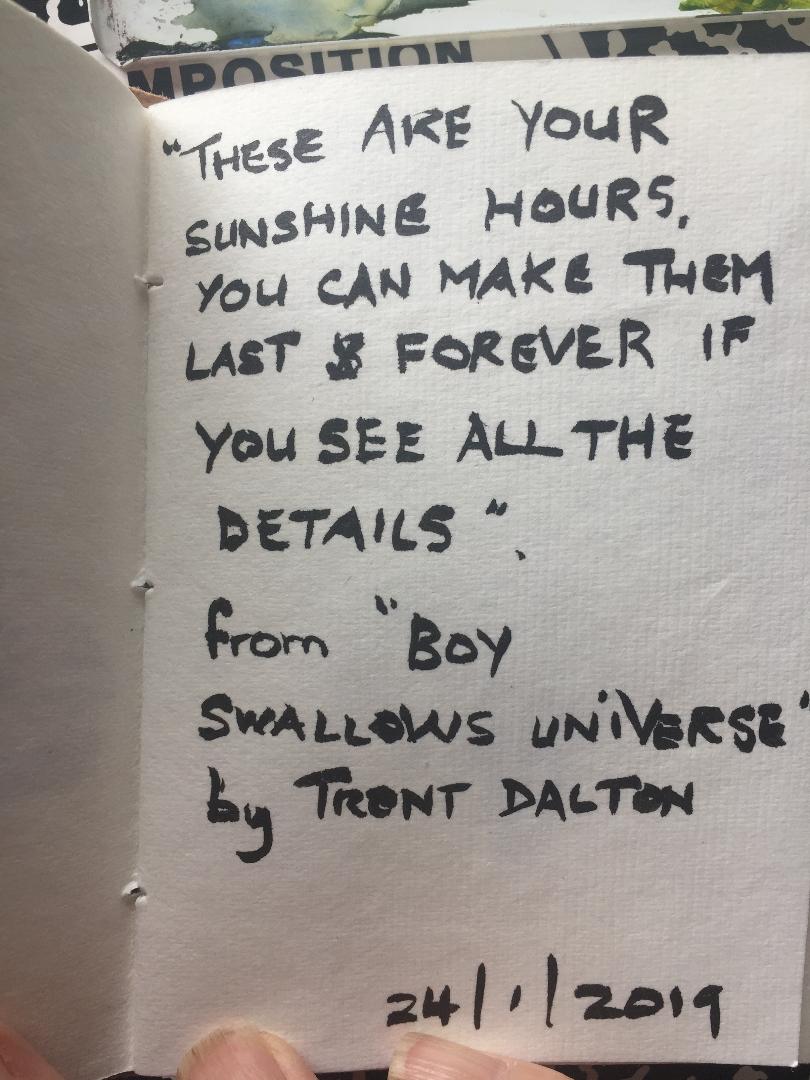 MPOSITION
"THESE ARE YOUR
SUNSHINE HOURS,
YOU CAN MAKE THEM
LAST FOREVER IF
YOU SEE ALL THE
DETAILS".
from "BOY
SWALLOWS UNIVERSE"
by TRENT DALTON
24/1/2019